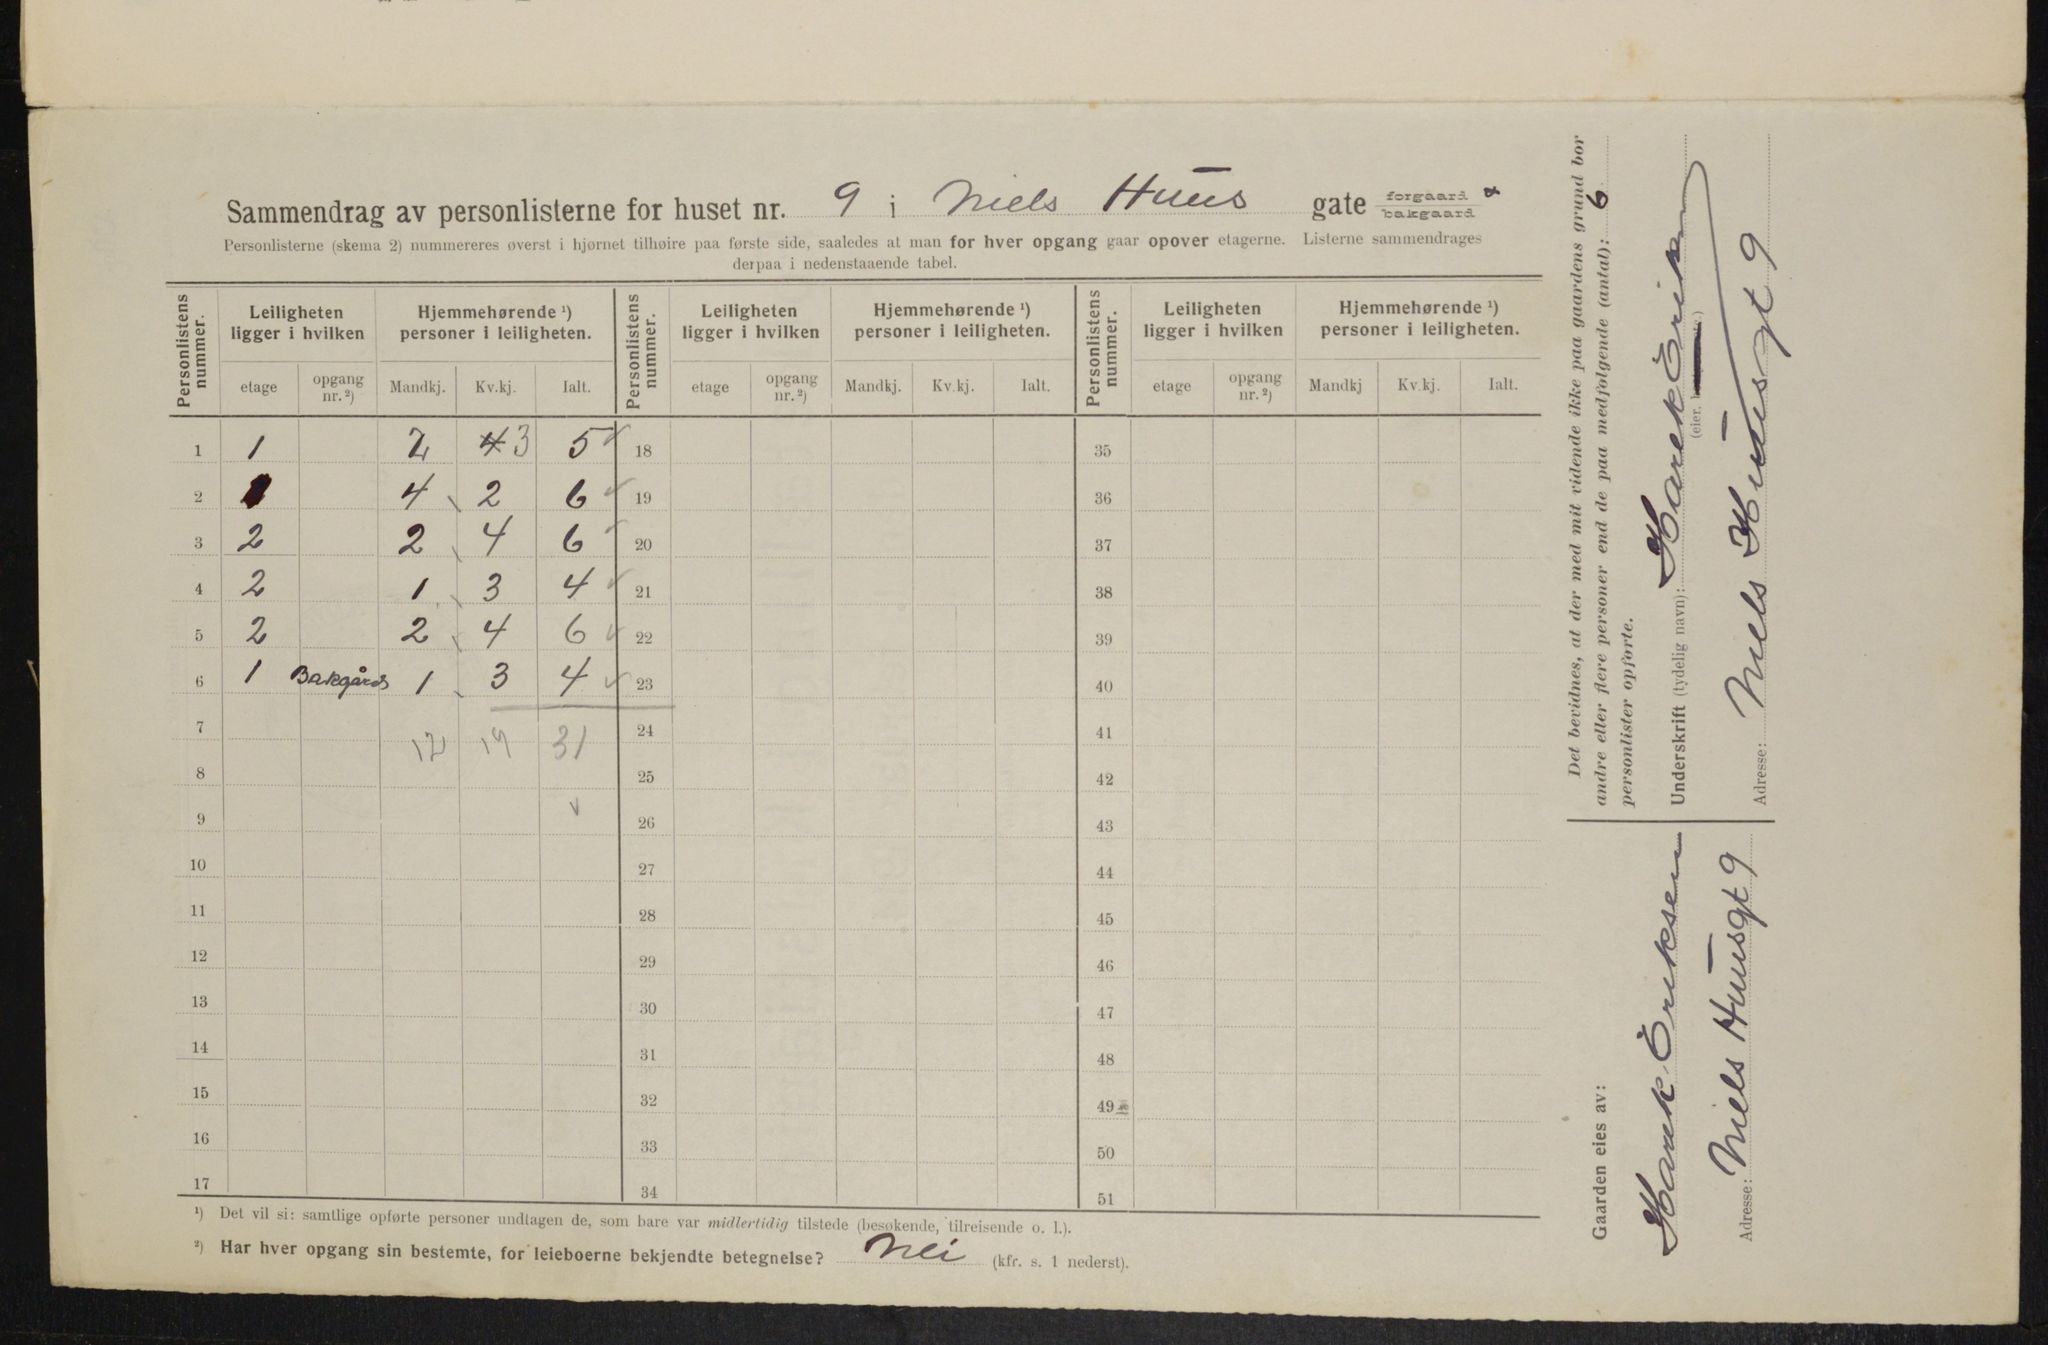 Sammendrag av personlisterne for huset nr. 9 i Niels Huus gate forgaard & bakgaard
Personlisterne (skema 2) nummereres øverst i hjørnet tilhøire paa første side, saaledes at man for hver opgang gaar opover etagerne. Listerne sammendrages
derpaa i nedenstaaende tabel.
Personlistens nummer. Leiligheten ligger i hvilken Hjemmehørende ¹) personer i leiligheten. Personlistens nummer. Leiligheten ligger i hvilken Hjemmehørende ¹) personer i leiligheten. Personlistens nummer. Leiligheten ligger i hvilken Hjemmehørende ¹) personer i leiligheten.
etage opgang nr. ²) Mandkj. Kv.kj. Ialt. etage opgang nr. ²) Mandkj. Kv.kj. Ialt. etage opgang nr. ²) Mandkj Kv.kj. Ialt.
1 1 2 4 3 5 ✓ 18 35
2 4 2 6 ✓ 19 36
3 2 2 4 6 ✓ 20 37
4 2 1 3 4 ✓ 21 38
5 2 2 4 6 ✓ 22 39
6 1 Bakgård 1 3 4 ✓ 23 40
7 12 19 31 24 41
8 25 42
9 ✓ 26 43
10 27 44
11 28 45
12 29 46
13 30 47
14 31 48
15 32 49
16 33 50
17 34 51
¹) Det vil si: samtlige opførte personer undtagen de, som bare var midlertidig tilstede (besøkende, tilreisende o. l.).
²) Har hver opgang sin bestemte, for leieboerne bekjendte betegnelse? Nei (kfr. s. 1 nederst).
Det bevidnes, at der med mit vidende ikke paa gaardens grund bor
andre eller flere personer end de paa medfølgende (antal): 6
personlister opførte.
Underskrift (tydelig navn): Harek Erik
(eier,
Adresse: Niels Huusgt 9
Gaarden eies av:
Harek Eriksen
Adresse: Niels Huusgt 9